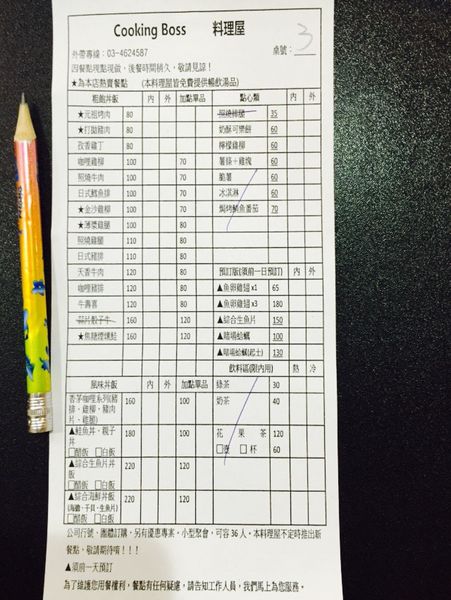 Cooking Boss 料理屋
外帶專線：03-4624587
桌號： 3
因餐點現點現做，後餐時間稍久，敬請見諒！
★為本店熱賣餐點 (本料理屋皆免費提供暢飲湯品)
粗飽丼飯 內 外 加點單品 點心類 內 外
★元祖烤肉 80 35
★打拋豬肉 80 奶酥可樂餅 60
孜香雞丁 80 檸檬雞柳 60
咖哩雞柳 100 70 薯條＋雞塊 60
照燒牛肉 100 70 脆薯 60
日式鱈魚排 100 70 冰淇淋 60
★金沙雞柳 100 70 焗烤鯛魚番茄 70
★薄漿雞腿 100 80
照燒雞腿 110 80
日式豬排 110 80
天香牛肉 120 80 預訂版(須前一日預訂) 內 外
咖哩豬排 120 80 ▲魚卵雞翅 x1 65
牛壽喜 120 80 ▲魚卵雞翅 x3 180
蒜片骰子牛 160 120 ▲綜合生魚片 150
★焦糖煙燻鮭 160 120 100
130
飲料區(限內用) 熱 冷
風味丼飯 內 外 加點單品 綠茶 30
香茅咖哩系列(豬排、雞柳、豬肉片、雞腿) 160 100 奶茶 40
▲鮭魚丼、親子丼 180 100 花果茶 120
□醋飯 □白飯 □壺 □杯 60
▲綜合生魚片丼飯 220 120
□醋飯 □白飯
▲綜合海鮮丼飯 220 120
(海膽、干貝、生魚片)
□醋飯 □白飯
公司行號、團體訂購，另有優惠專案。小型聚會，可容 36 人。本料理屋不定時推出新
餐點，敬請期待唷！！！
▲須前一天預訂
為了維護您用餐權利，餐點有任何疑慮，請告知工作人員，我們馬上為您服務。